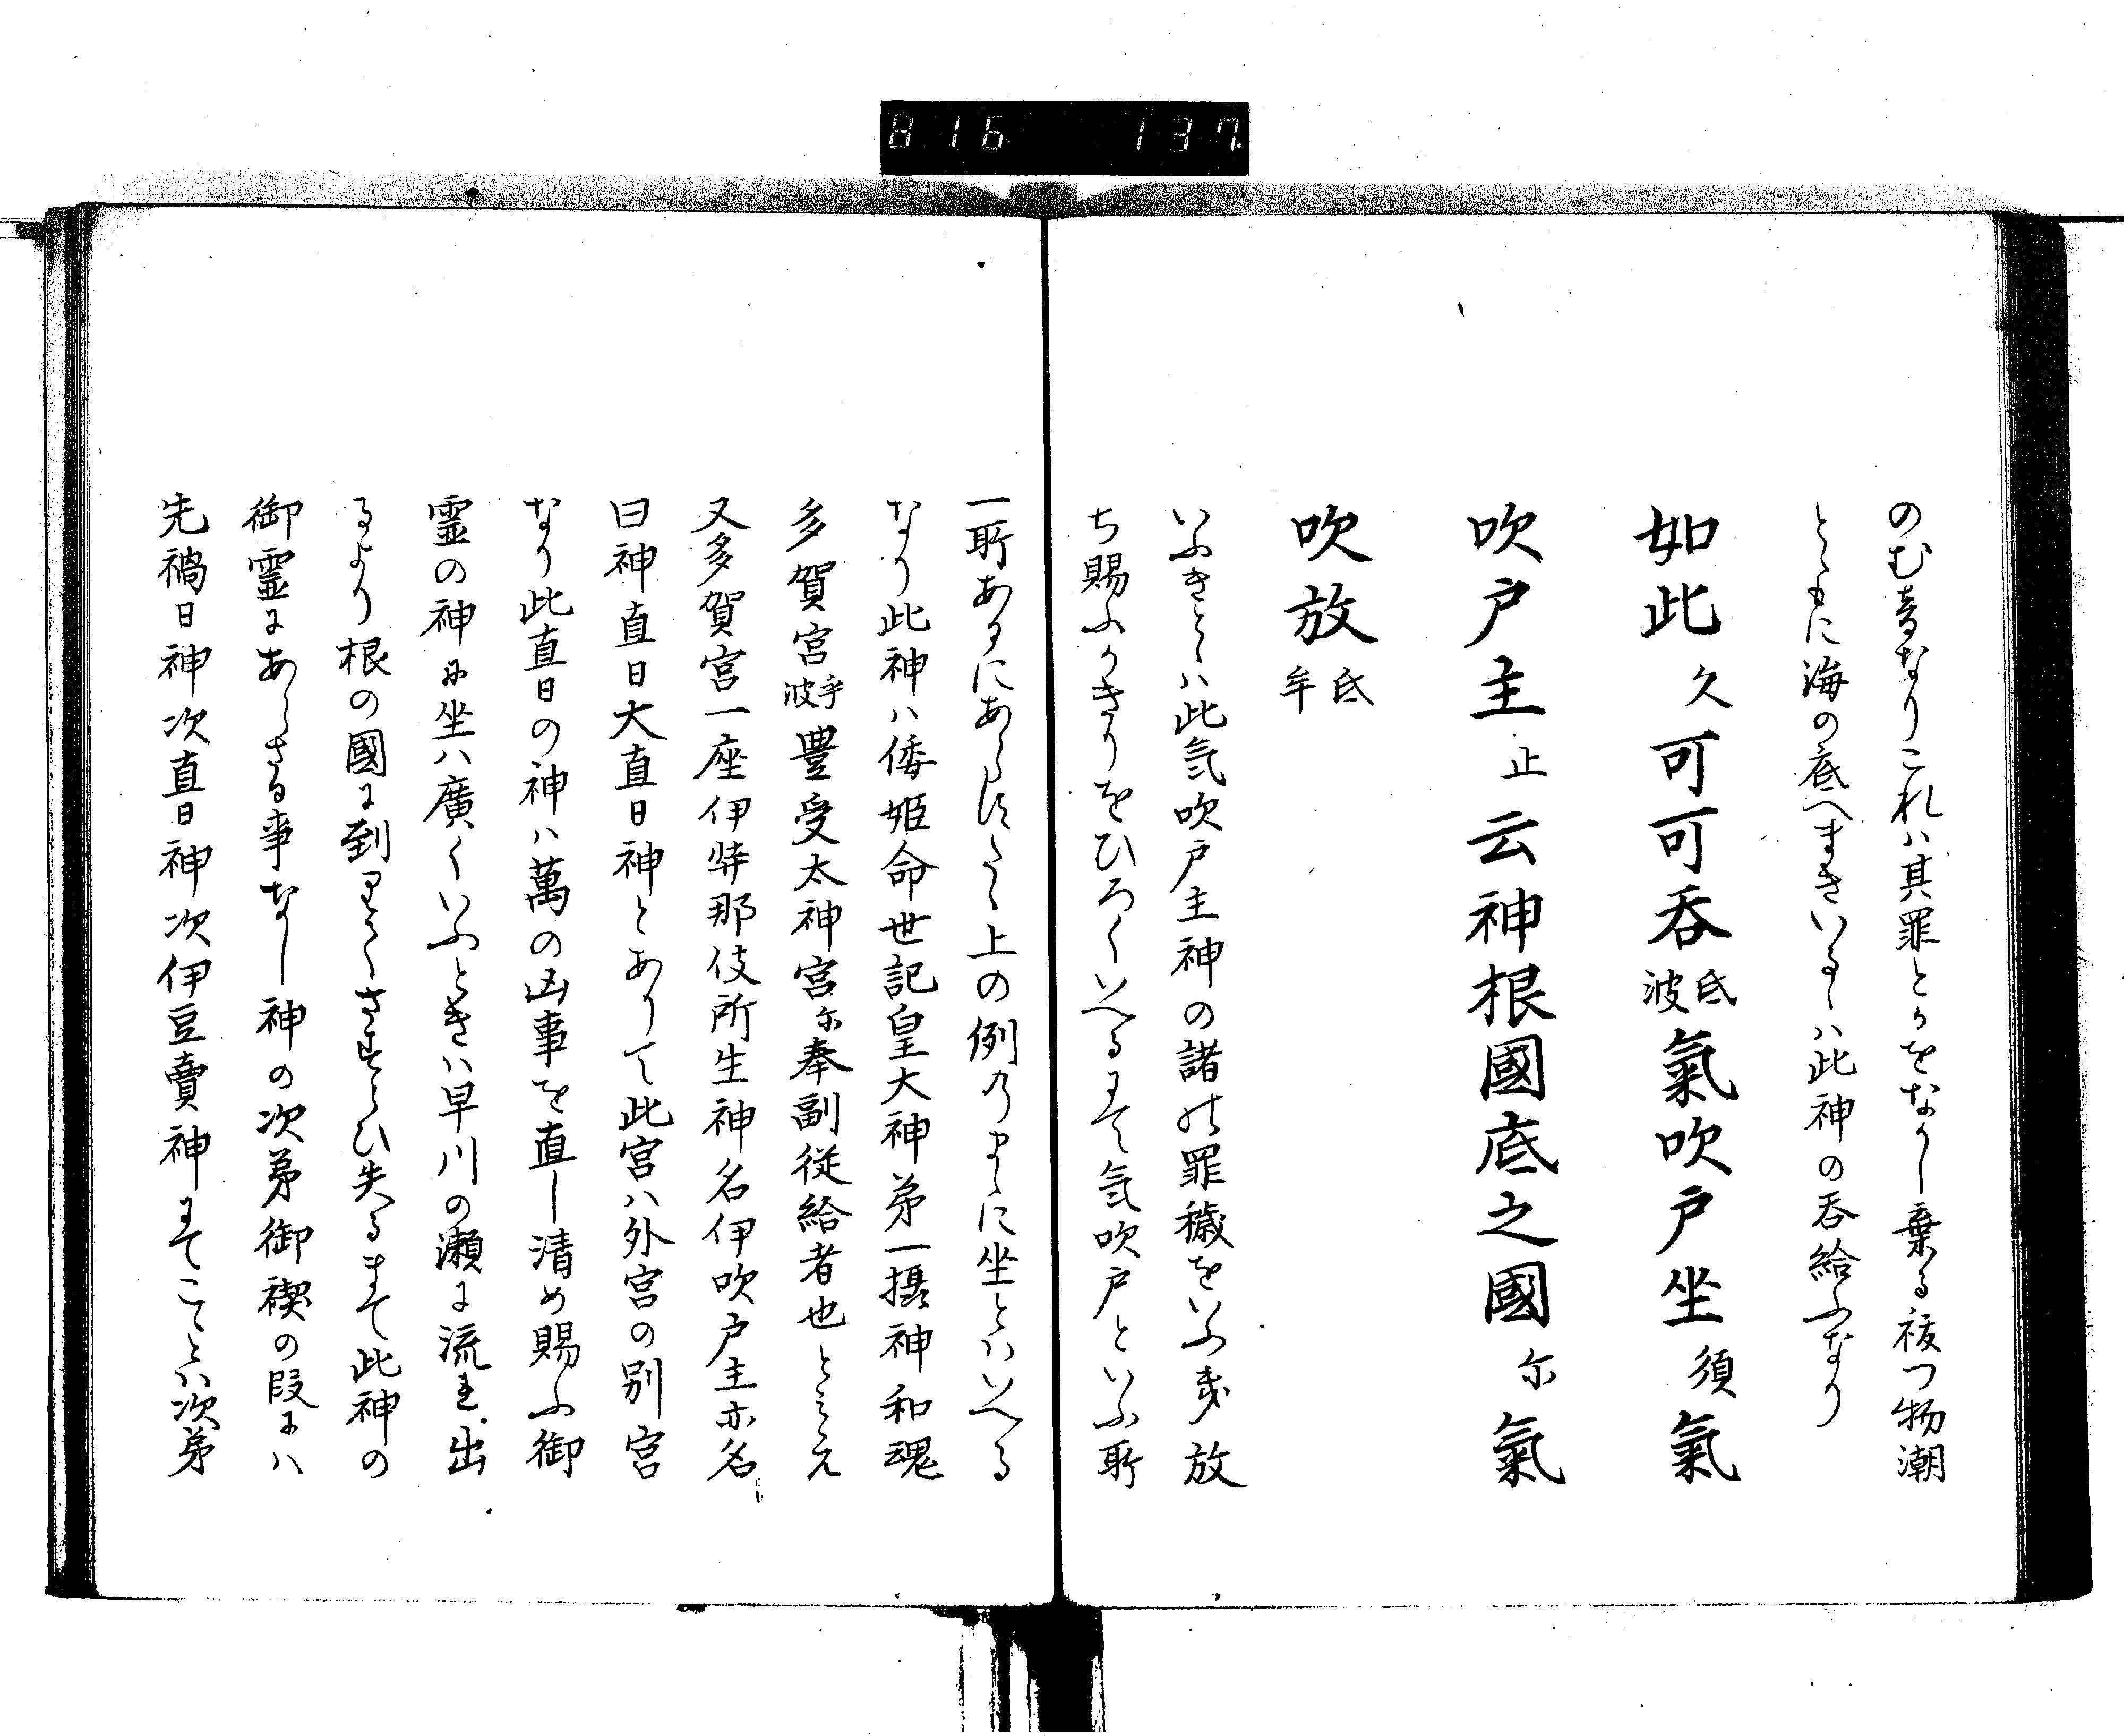 816 137
のむ音なりこれハ其罪とかをなかし棄る祓つ物潮
とゝもに海の底へまきいるゝハ此神の呑給ふなり
如此久可可呑氐波氣吹戸坐須氣
吹戸主止云神根國底之國尓氣
吹放氐牟
いふきとハ此気吹戸主神の諸の罪穢をいふき放
ち賜ふかきりをひろくいへるにて気吹戸といふ所
一所あるにあらすたゝ上の例のまゝに坐とハいへる
なり此神ハ倭姫命世記皇大神第一摂神和魂
多賀宮乎波豊受太神宮尓奉副従給者也とみえ
又多賀宮一座伊弉那伎所生神名伊吹戸主亦名
曰神直日大直日神とありて此宮ハ外宮の別宮
なり此直日の神ハ萬の凶事を直し清め賜ふ御
霊の神に坐ハ廣くいふときハ早川の瀬に流れ出
るより根の國に到りてさすらひ失るまて此神の
御霊にあらさる事なし神の次第御禊の段にハ
先禍日神次直日神次伊豆賣神にてこゝとハ次第